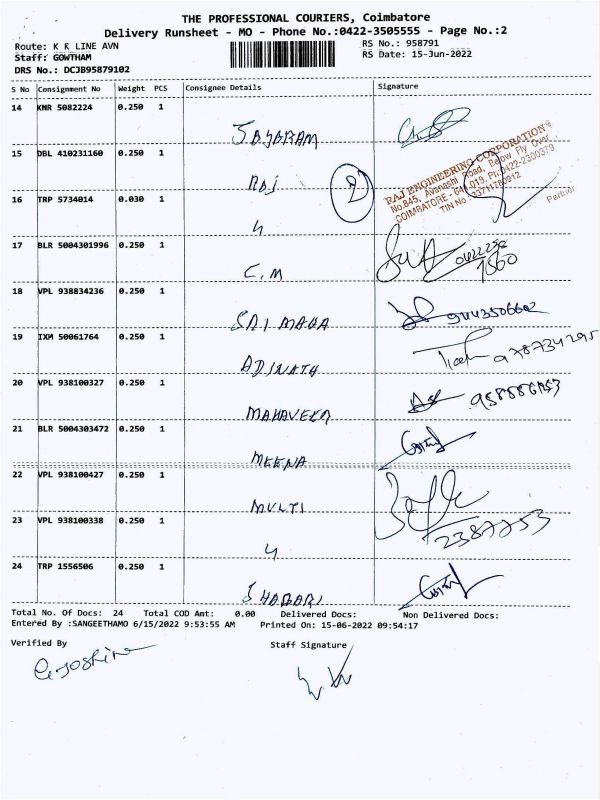 THE PROFESSIONAL COURIERS, Coimbatore
Delivery Runsheet - MO - Phone No.:0422-3505555 - Page No.:2
Route: K K LINE AVN
RS No.: 958791
Staff: GOWTHAM
RS Date: 15-Jun-2022
DRS No.: DCJB95879102
S No Consignment No Weight PCS Consignee Details Signature
14 KNR 5082224 0.250 1
15 DBL 410231160 0.250 1
RAJ
RAJ ENGINEERING CORPORATION
No.845, Avanashi Road, Below Fly Over,
COIMBATORE - 641 018. Ph:0422-2300370
Partner
16 TRP 5734014 0.030 1
2
17 BLR 5004301996 0.250 1
C.M
0422252
18 VPL 938834236 0.250 1
SRI MAHA
19 IXM 50061764 0.250 1
ADINATH
9787734295
20 VPL 938100327 0.250 1
MAHAVEER
21 BLR 5004303472 0.250 1
MEENA
22 VPL 938100427 0.250 1
MULTI
23 VPL 938100338 0.250 1
2387753
24 TRP 1556506 0.250 1
SHABARI
Total No. Of Docs: 24 Total COD Amt: 0.00 Delivered Docs: Non Delivered Docs:
Entered By :SANGEETHAMO 6/15/2022 9:53:55 AM Printed On: 15-06-2022 09:54:17
Verified By Staff Signature